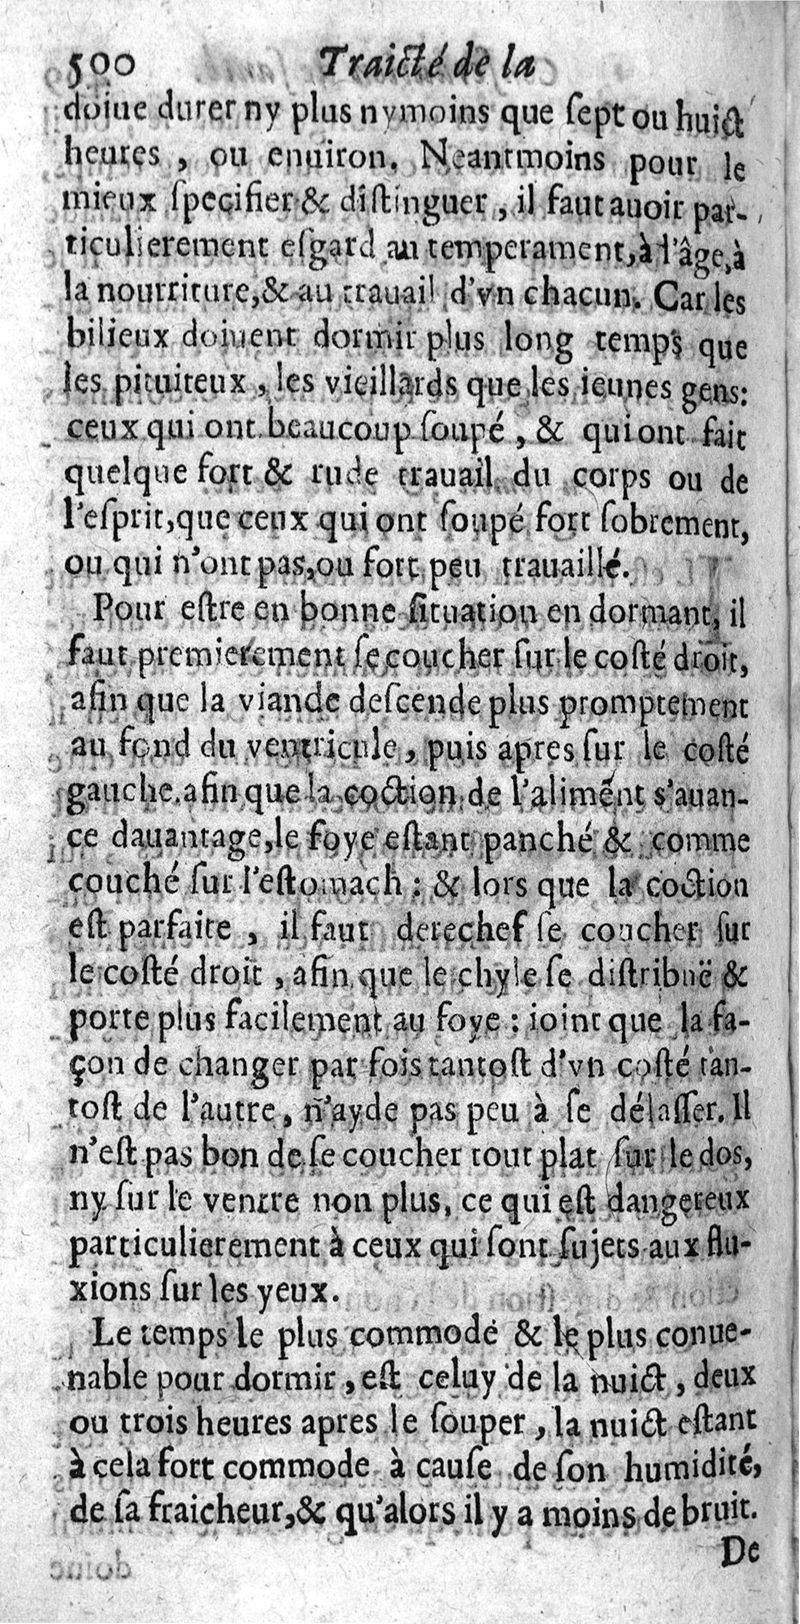 500 Traicté de la
doiue durer ny plus ny moins que ſept ou huict
heures , ou enuiron. Neantmoins pour le
mieux ſpecifier & diſtinguer , il faut auoir par-
ticulierement eſgard au temperament,à l'âge,à
la nourriture,& au trauail d'vn chacun. Car les
bilieux doiuent dormir plus long temps que
les pituiteux , les vieillards que les ieunes gens:
ceux qui ont beaucoup ſoupé , & qui ont fait
quelque fort & rude trauail du corps ou de
l'eſprit,que ceux qui ont ſoupé fort ſobrement,
ou qui n'ont pas,ou fort peu trauaillé.
Pour eſtre en bonne ſituation en dormant, il
faut premierement ſe coucher ſur le coſté droit,
afin que la viande deſcende plus promptement
au fond du ventricule , puis apres ſur le coſté
gauche.afin que la coction de l'alimẽnt s'auan-
ce dauantage,le foye eſtant panché & comme
couché ſur l'eſtomach : & lors que la coction
eſt parfaite , il faut derechef ſe coucher ſur
le coſté droit , afin que le chyle ſe diſtribuë &
porte plus facilement au foye : ioint que la fa-
çon de changer par fois tantoſt d'vn coſté tan-
toſt de l'autre , n'ayde pas peu à ſe délaſſer. Il
n'eſt pas bon de ſe coucher tout plat ſur le dos,
ny ſur le ventre non plus, ce qui eſt dangereux
particulierement à ceux qui ſont ſujets aux flu-
xions ſur les yeux.
Le temps le plus commode & le plus conue-
nable pour dormir , eſt celuy de la nuict , deux
ou trois heures apres le ſouper , la nuict eſtant
à cela fort commode à cauſe de ſon humidité,
de ſa fraicheur,& qu'alors il y a moins de bruit.
De